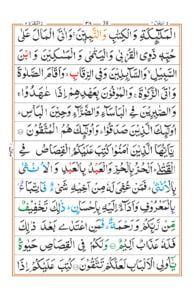 ۳۹ 39
الْمَلٰٓئِكَةِ وَالْكِتٰبِ وَالنَّبِيّٖنَ ۚ وَاٰتَى الْمَالَ عَلٰى
حُبِّهٖ ذَوِى الْقُرْبٰى وَالْيَتٰمٰى وَالْمَسٰكِيْنَ وَابْنَ
السَّبِيْلِ ۙ وَالسَّآئِلِيْنَ وَفِى الرِّقَابِ ۚ وَاَقَامَ الصَّلٰوةَ
وَاٰتَى الزَّكٰوةَ ۚ وَالْمُوْفُوْنَ بِعَهْدِهِمْ اِذَا عٰهَدُوْا ۚ
وَالصّٰبِرِيْنَ فِى الْبَاْسَآءِ وَالضَّرَّآءِ وَحِيْنَ الْبَاْسِ ؕ
اُولٰٓئِكَ الَّذِيْنَ صَدَقُوْا ؕ وَاُولٰٓئِكَ هُمُ الْمُتَّقُوْنَ
يٰٓاَيُّهَا الَّذِيْنَ اٰمَنُوْا كُتِبَ عَلَيْكُمُ الْقِصَاصُ فِى
الْقَتْلٰى ؕ اَلْحُرُّ بِالْحُرِّ وَالْعَبْدُ بِالْعَبْدِ وَالْاُنْثٰى
بِالْاُنْثٰى ؕ فَمَنْ عُفِىَ لَهٗ مِنْ اَخِيْهِ شَىْءٌ فَاتِّبَاعٌۢ
بِالْمَعْرُوْفِ وَاَدَآءٌ اِلَيْهِ بِاِحْسَانٍ ؕ ذٰلِكَ تَخْفِيْفٌ
مِّنْ رَّبِّكُمْ وَرَحْمَةٌ ؕ فَمَنِ اعْتَدٰى بَعْدَ ذٰلِكَ
فَلَهٗ عَذَابٌ اَلِيْمٌ وَلَكُمْ فِى الْقِصَاصِ حَيٰوةٌ
يّٰٓاُولِى الْاَلْبَابِ لَعَلَّكُمْ تَتَّقُوْنَ كُتِبَ عَلَيْكُمْ اِذَا